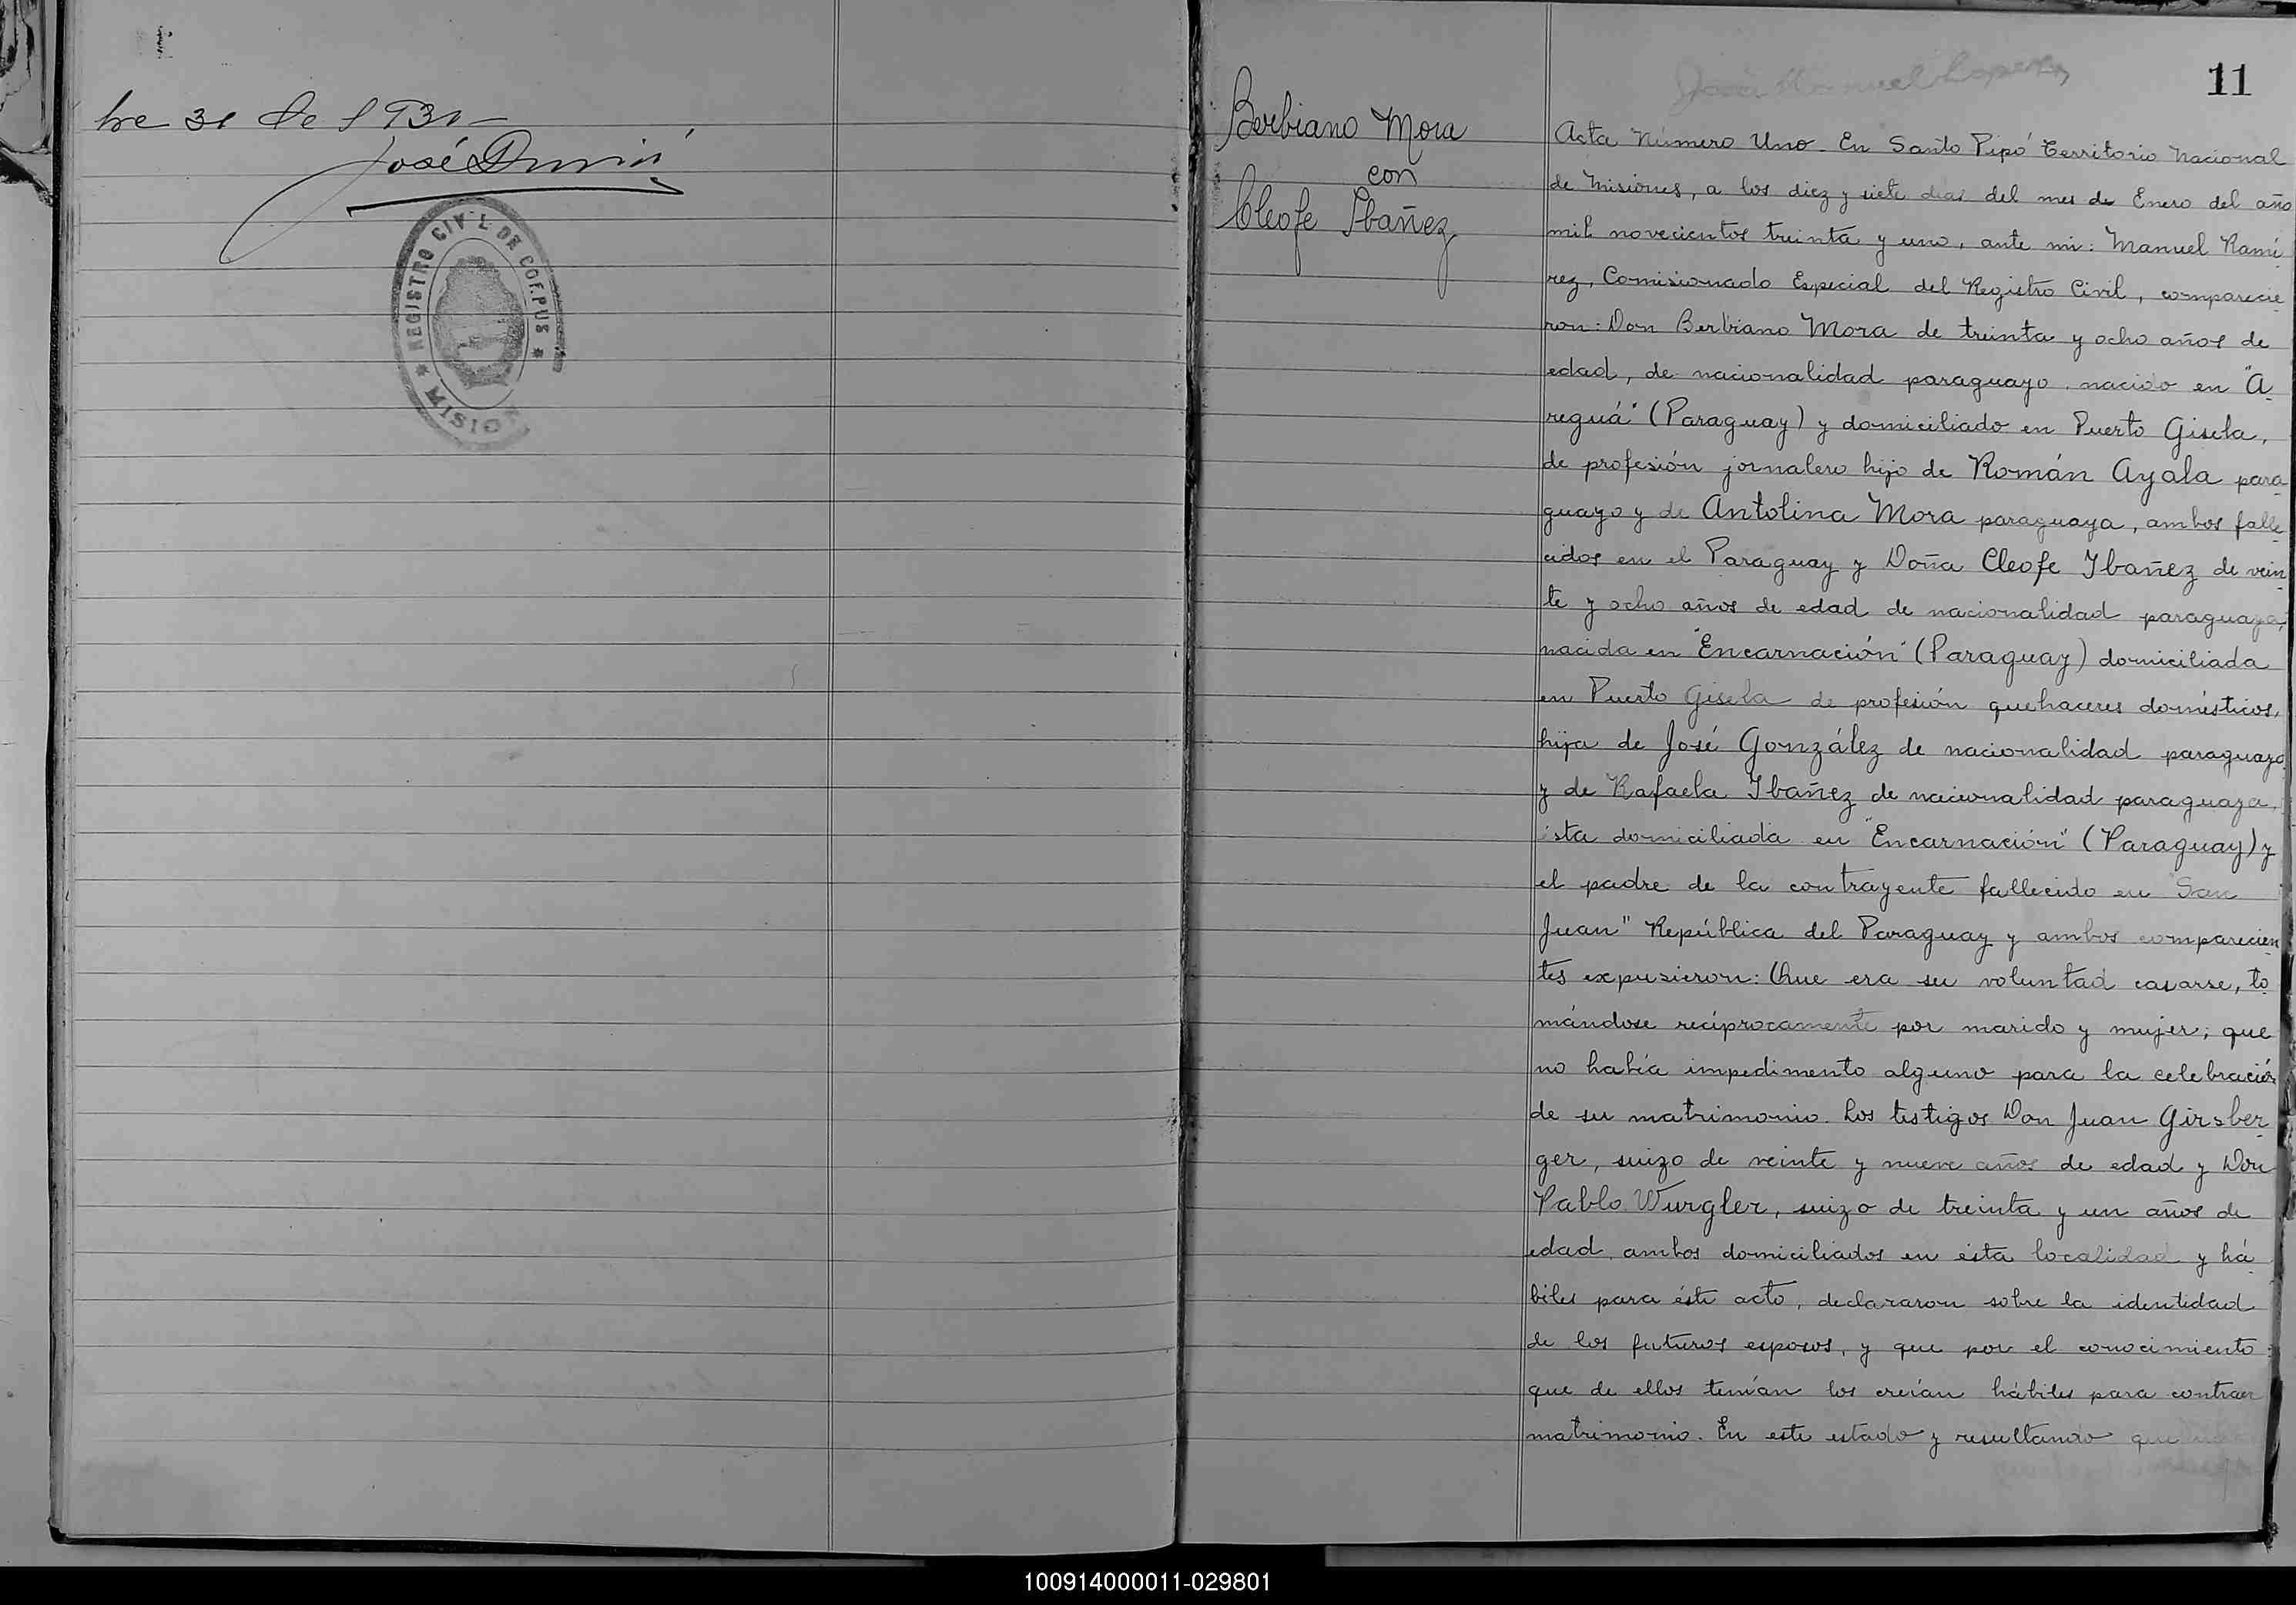 bre 31 de 1931 —
José
REGISTRO CIVIL DE CORPUS
MISIO
11
Berbiano Mora
con
Cleofe Ibañez
José Manuel Lopez
Acta Número Uno. En Santo Pipó Territorio Nacional
de Misiones, a los diez y siete dias del mes de Enero del año
mil novecientos treinta y uno, ante mi: Manuel Rami-
rez, Comisionado Especial del Registro Civil, comparecie-
ron: Don Berbiano Mora de treinta y ocho años de
edad, de nacionalidad paraguayo nacido en "A-
reguá" (Paraguay) y domiciliado en Puerto Gisela,
de profesión jornalero hijo de Román Ayala para-
guayo y de Antolina Mora paraguaya, ambos falle-
cidos en el Paraguay y Doña Cleofe Ybañez de vein-
te y ocho años de edad de nacionalidad paraguaya,
nacida en "Encarnación" (Paraguay) domiciliada
en Puerto Gisela de profesión quehaceres domésticos,
hija de José González de nacionalidad paraguayo
y de Rafaela Ybañez de nacionalidad paraguaya,
ésta domiciliada en "Encarnación" (Paraguay) y
el padre de la contrayente fallecido en "San
Juan" República del Paraguay y ambos comparecien-
tes expusieron: Que era su voluntad casarse, to-
mándose recíprocamente por marido y mujer; que
no había impedimento alguno para la celebración
de su matrimonio. Los testigos Don Juan Girsber-
ger, suizo de veinte y nueve años de edad y Don
Pablo Wurgler, suizo de treinta y un años de
edad ambos domiciliados en ésta localidad y há-
biles para éste acto, declararon sobre la identidad
de los futuros esposos, y que por el conocimiento
que de ellos tenían los creían hábiles para contraer
matrimonio. En este estado y resultando que
100914000011-029801